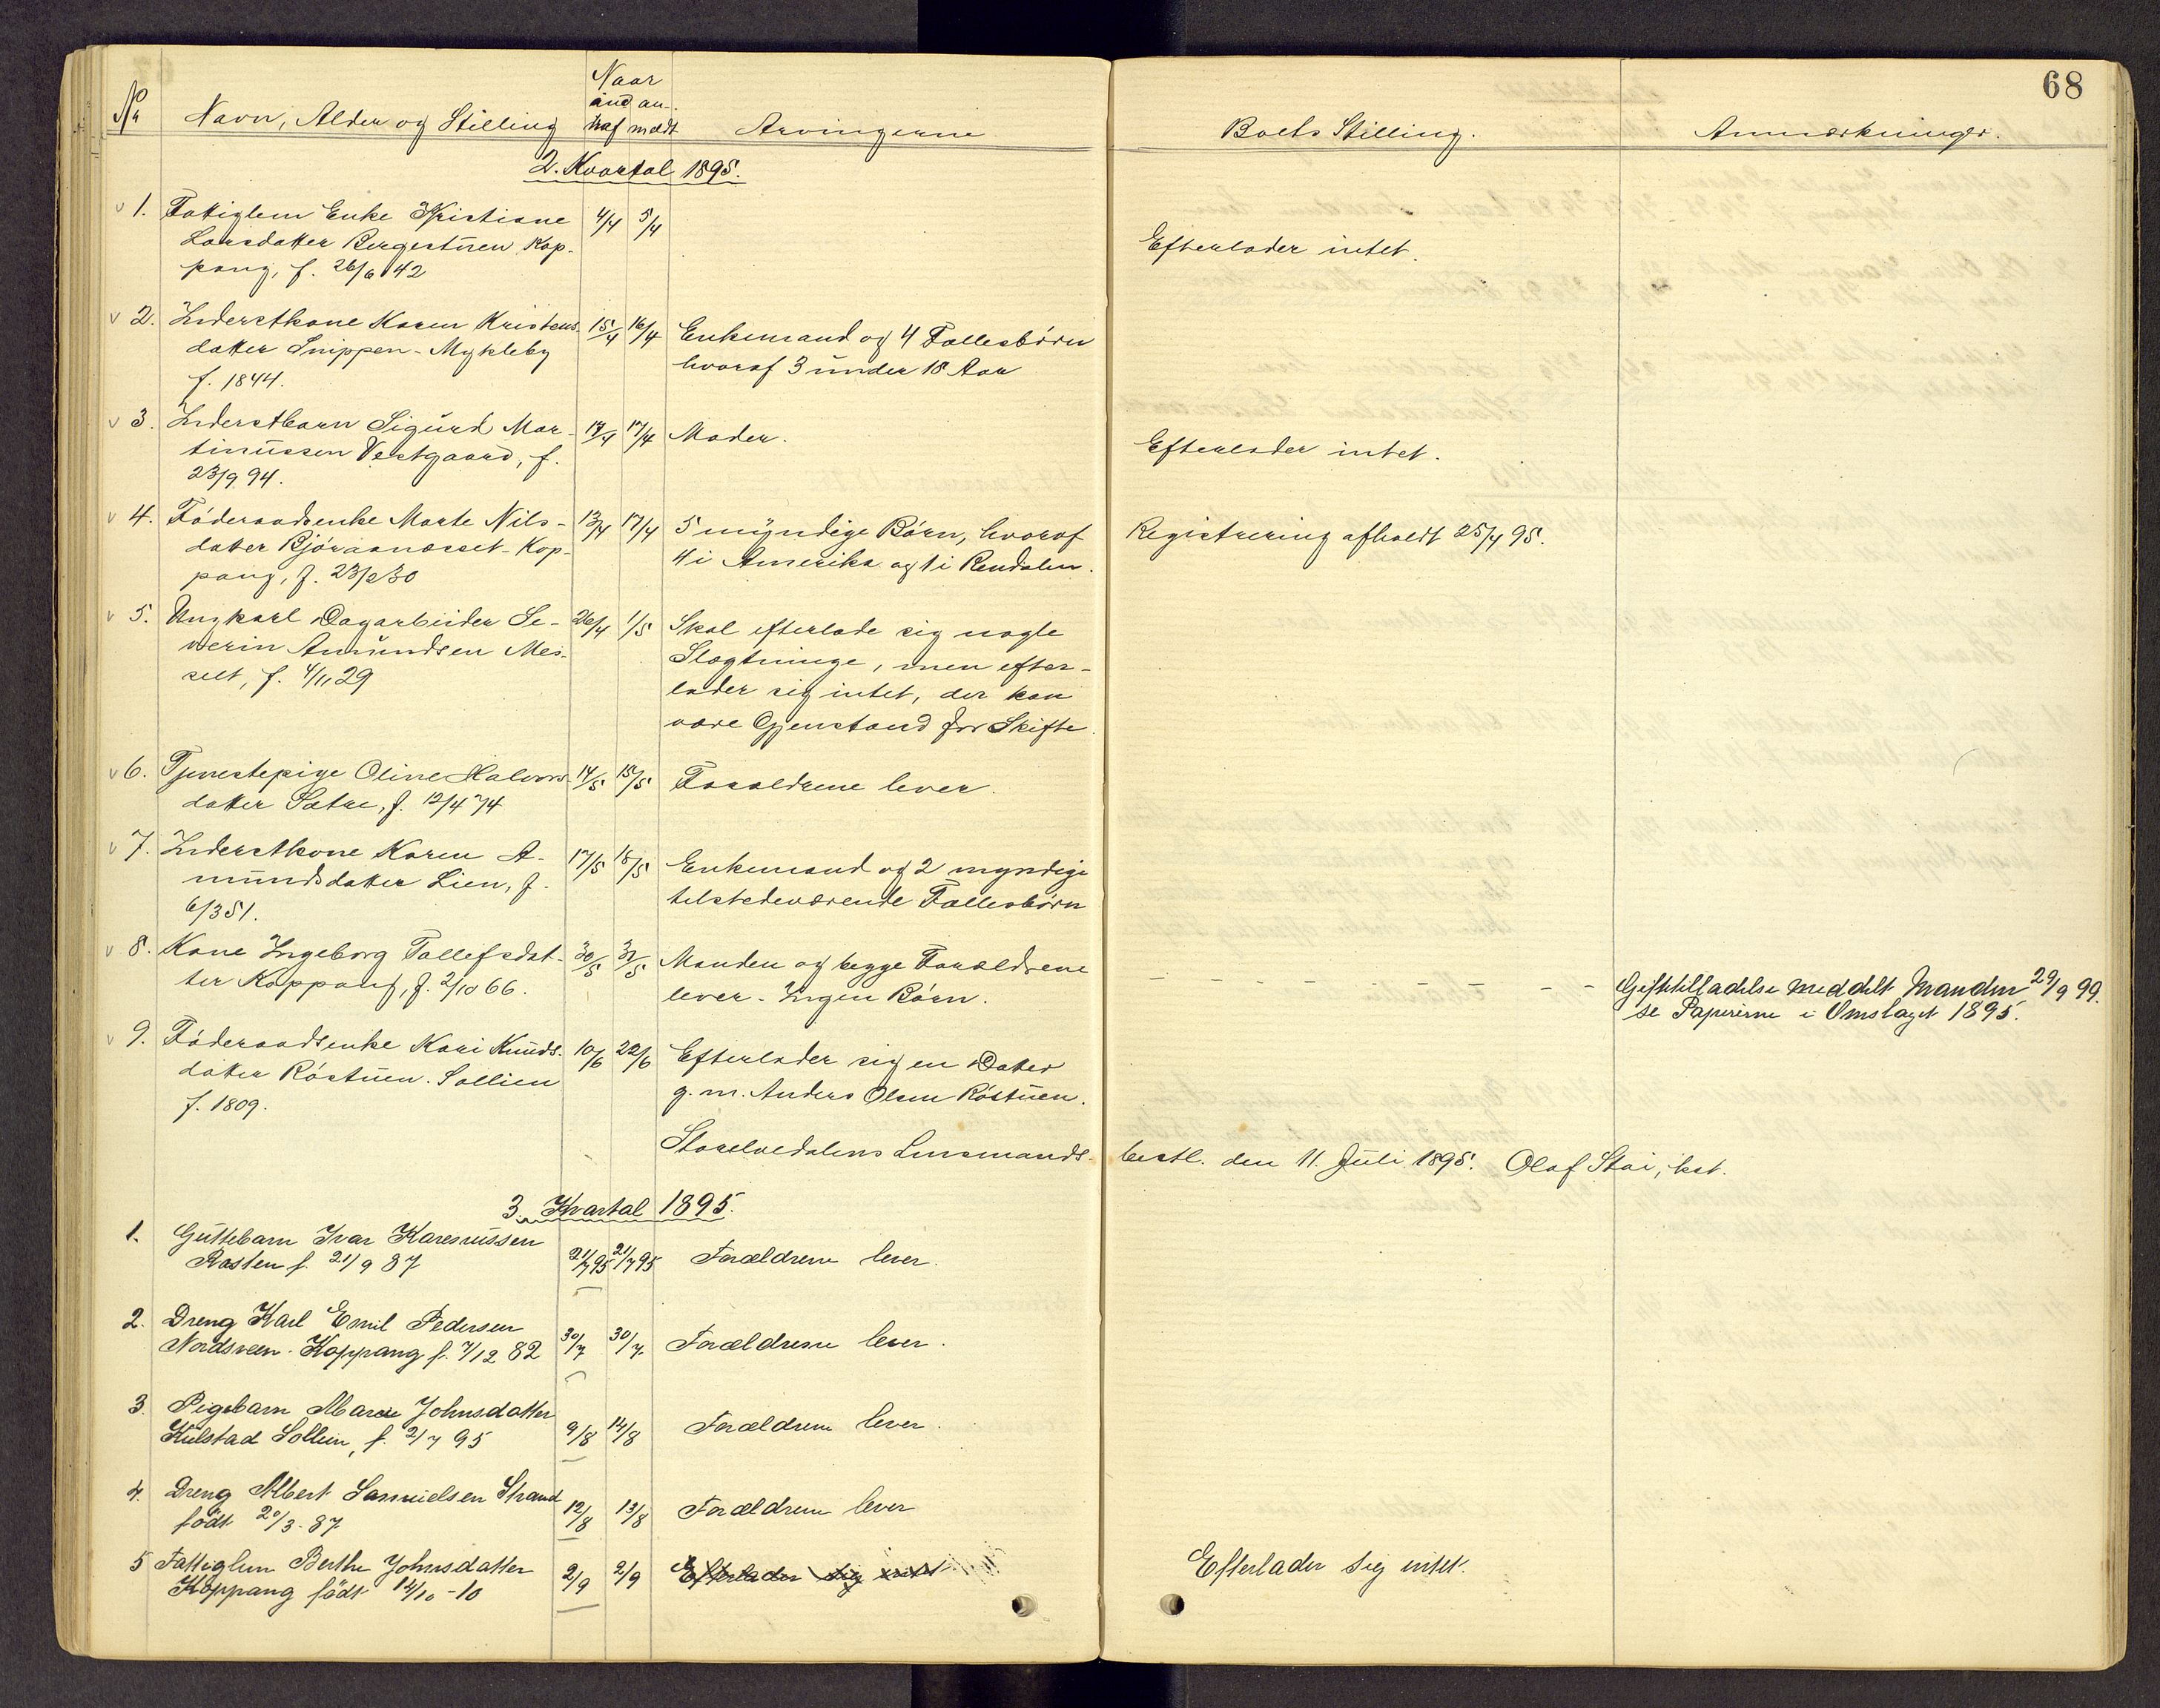 68
Naar
№ Navn, Alder og Stilling død an-
traf meldt Arvingerne Boets Stilling. Anmærkninger.
2. Kvartal 1895.
1. Fattiglem Enke Kristiane 4/4 5/4
Larsdatter Bergestuen Kop- Efterlader intet.
pang, f. 26/6 42
2. Inderstkone Karen Kristens- 15/4 16/4 Enkemand og 4 Fællesbörn
datter Snippen-Mykleby hvoraf 3 under 18 Aar
f. 1844.
3. Inderstbarn Sigurd Mar- 17/4 17/4 Moder.
tinussen Vestgaard, f. Efterlader intet.
23/9 94.
4. Föderaadsenke Marte Nils- 13/4 17/4 5 myndige Börn, hvoraf Registrering afholdt 25/4 95.
datter Björaanæsset-Kop- 4 i Amerika og 1 i Rendalen.
pang, f. 23/2 30
5. Ungkarl Dagarbeider Se- 26/4 1/5 Skal efterlade sig nogle
verin Amundsen Mes- Slægtninge, men efter-
selt, f. 4/11 29 lader sig intet, der kan
være Gjenstand for Skifte.
6. Tjenestepige Oline Halvors- 14/5 15/5 Forældrene lever.
datter Sætre, f. 12/4 74
7. Inderstkone Karen A- 17/5 18/5 Enkemand og 2 myndige
mundsdatter Lien, f. tilstedeværende Fællesbörn
6/3 51.
8. Kone Ingeborg Tollefsdat- 30/5 31/5 Manden og begge Forældrene - - - - - - - - Giftetilladelse meddelt Manden 29/9 99.
ter Koppang, f. 2/10 66. lever. Ingen Börn. se Papirerne i Omslaget 1895.
9. Föderaadsenke Kari Knuds- 10/6 22/6 Efterlader sig en Datter
datter Röstuen. Sollien g. m. Anders Olsen Röstuen.
f. 1809.
Storelvedalens Lensmands- bestl. den 11. Juli 1895. Olaf Stai, kst.
3. Kvartal 1895.
1. Guttebarn Ivar Karenussen
Rasten f. 21/9 87 21/7 95 21/7 95 Forældrene lever.
2. Dreng Karl Emil Pedersen
Nordsveen. Koppang f. 7/12 82 30/7 30/7. Forældrene lever.
3. Pigebarn Marie Johnsdatter
Kulstad Sollien, f. 2/7 95 9/8 14/8 Forældrene lever.
4. Dreng Albert Samuelsen Strand
födt 20/3-87 12/8 13/8 Forældrene lever
5 Fattiglem Berthe Johnsdatter 2/9 2/9 Efterlader sig intet Efterlader sig intet.
Koppang födt 14/10-10